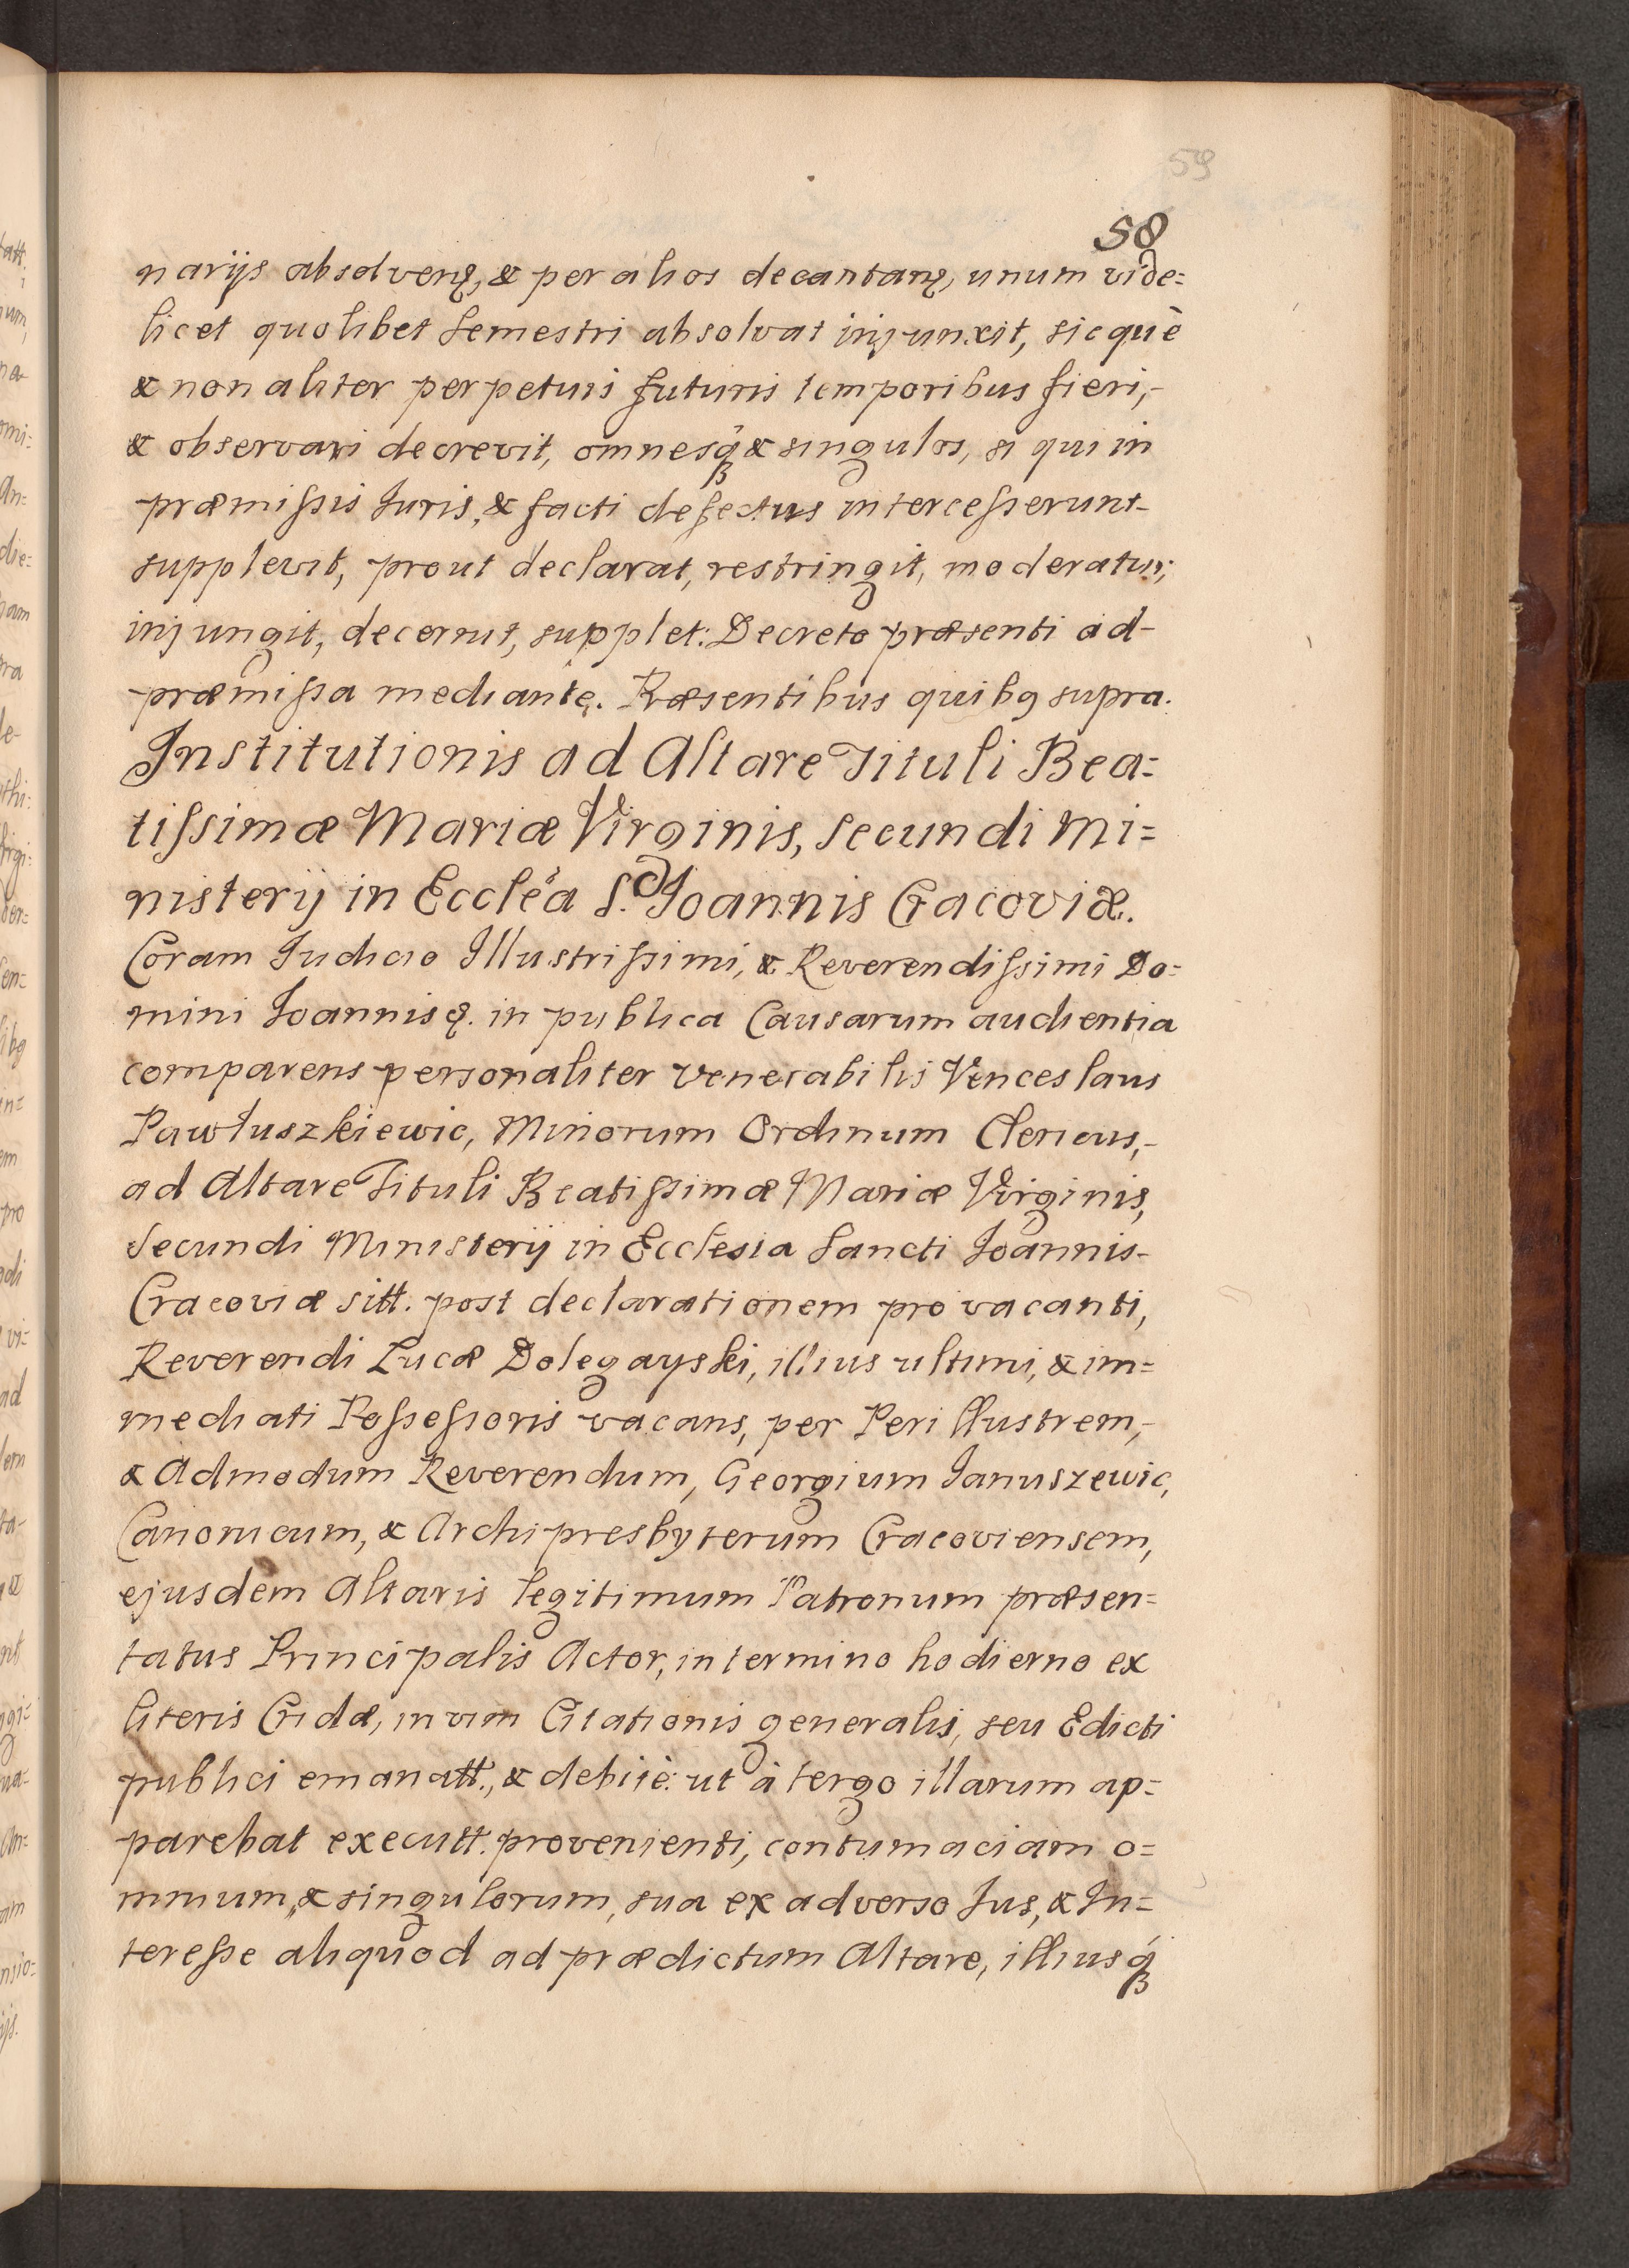 59
58
narijs absolvenꝝ, & per alios decantanꝝ, unum vide=
licet quolibet Semestri absolvat injunxit, sicquè
& non aliter perpetuis futuris temporibus fieri,-
& observari decrevit, omnesq́ꝫ & singulos, si qui in
præmiſsis Juris, & facti defectus interceſserunt-
supplevit, prout declarat, restringit, moderatur,
injungit, decernit, supplet: Decreto præsenti ad-
præmiſsa mediante. Præsentibus quibꝯ supra.
Institutionis ad Altare Tituli Bea=
tiſsimæ Mariæ Virginis, Secundi Mi=
nisterij in Eccle͂a S. Joannis Cracoviæ.
Coram Judicio Illustriſsimi, & Reverendiſsimi Do=
mini Joannis &. in publica Causarum audientia
comparens personaliter Venerabilis Venceslaus
Pawłuszkiewic, Minorum Ordinum Clericus,-
ad Altare Tituli Beatiſsimæ Mariæ Virginis,
Secundi Ministerij in Ecclesia Sancti Joannis-
Cracoviæ sitt. post declarationem pro vacanti,
Reverendi Lucæ Dolegayski, illius ultimi, & im=
mediati Poſseſsoris vacans, per Perillustrem,-
& Admodum Reverendum, Georgium Januszewic,
Canonicum, & Archipresbyterum Cracoviensem,
ejusdem Altaris legitimum Patronum præsen=
tatus Principalis Actor, in termino hodierno ex
literis Cridæ, in vim Citationis generalis, seu Edicti
publici emanatt., & debitè: ut à tergo illarum ap=
parebat executt. provenienti, contumaciam o=
mnium, & singulorum, sua ex adverso Jus, & In=
tereſse aliquod ad prædictum Altare, illiusq́ꝫ